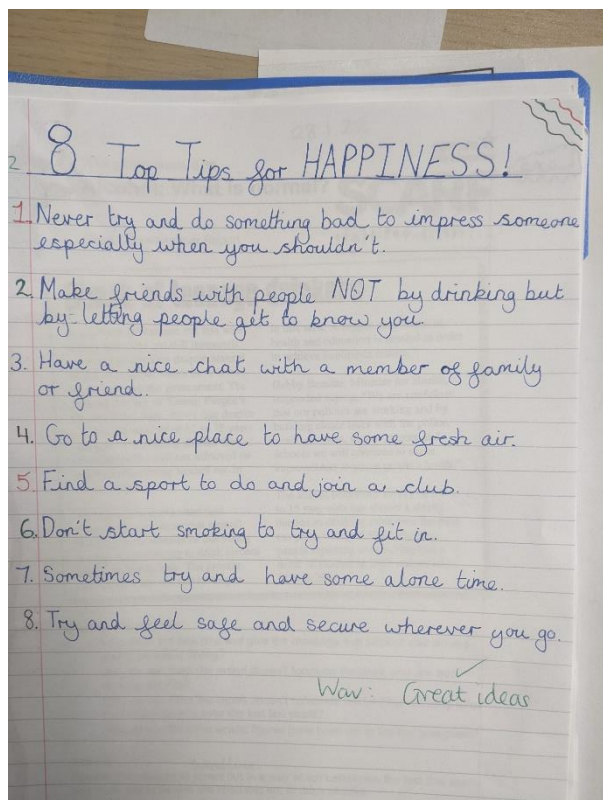 8 Top Tips for HAPPINESS!
1. Never try and do something bad to impress someone
especially when you shouldn't.
2. Make friends with people NOT by drinking but
by letting people get to know you.
3. Have a nice chat with a member of family
or friend.
4. Go to a nice place to have some fresh air.
5. Find a sport to do and join a club.
6. Don't start smoking to try and fit in.
7. Sometimes try and have some alone time.
8. Try and feel safe and secure wherever you go.
Waw: Great ideas